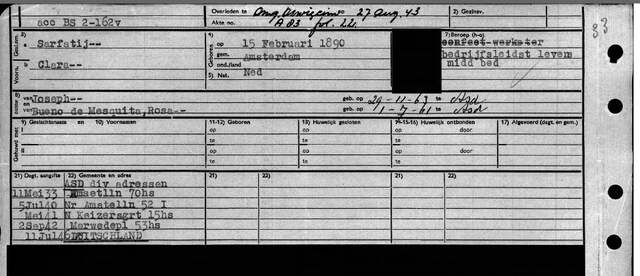 acc BS 2-162v
Overleden te omg. Auswicim 27 aug. 43
Akte no. A 83 fol.
2) Gezinsv.
33
3)
Sarfatij--
Geslachtsn.
Clara--
Voorn.
4) Geboren
op 15 Februari 1890
gem. Amsterdam
ond./land
5) Nat. Ned
7) Beroep (h-o)
confect-werkster
bedrijfsleidst levens
midd bed
van Joseph--
en van Bueno de Mesquita, Rosa--
geb. op 29-11-63 te Asd
geb. op 1-7-61 te Asd
9) Geslachtsnaam en 10) Voornamen
11-12) Geboren
13-14) Huwelijk gesloten
15-16) Huwelijk ontbonden
17) Afgevoerd (dagt. en gem.)
Gehuwd met
I op op op door
te te te
II op op op door
te te te
21) Dagt. aangifte 22) Gemeente en adres
ASD div adressen
11Mei33 Amstelln 70hs
5Jul40 Nr Amstelln 52 I
Mei41 N Keizersgrt 15hs
2Sep42 Merwedepl 53hs
11Jul46 DUITSCHLAND